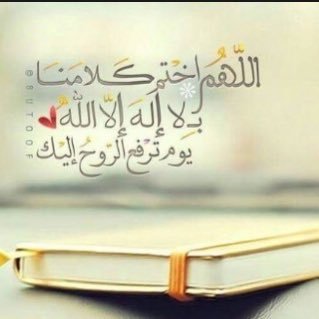 اللَّهُم اخْتم كَلامَنَا
بـِلا إِلهَ إلّا اللّٰهُ
يوم تَرْفع الرّوحُ إليْك
@BUTOOF